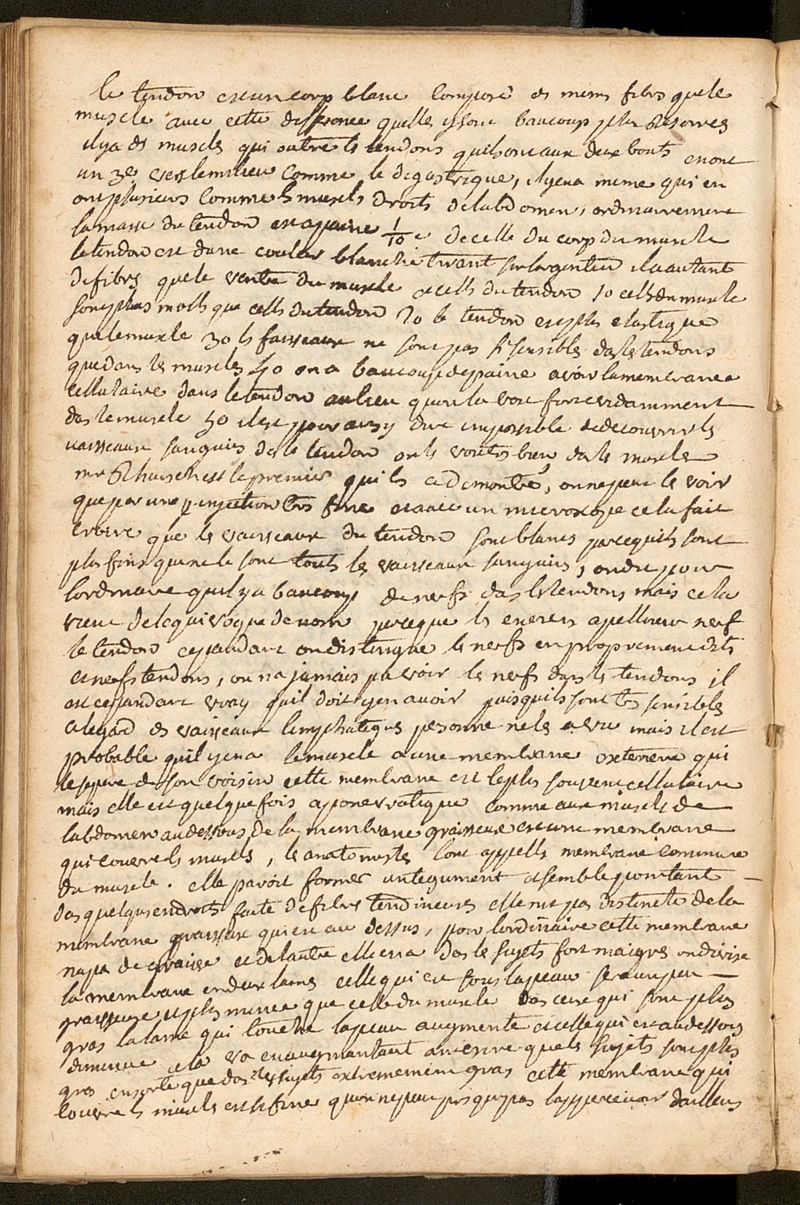 le tendon est un corp blanc composé des mems fibrs que le
muscle avec cette differance quelles y sont baucoup plus reserres
il y a ds muscles qui outre ls tendons quils ont aux deux bouts en ont
un 3e vers le milieu comme le digastrique, il y en a meme qui en
ont plusieurs comme ls muscls droits de labdomen, ordinairement
la masse du tendon est a paine 1/10 e de celle du corp du muscle
le tendon est dune couleur blanche tirant sur largentin il a autant
de fibrs que le ventre du muscle et cells du tendon 1o cells du muscle
sont plus molls que cells du tendon 2o le tendon est plus elastique
que le muscle 3o ls faisseaux ne sont pas si sensibles dans le tendons
que dans ls muscles 4o on a baucoup de paine a voir la membrane
cellulaire dans le tendon au lieu quon la voit fort evidamment
dans le muscle 5o il est pour ainsy dire impossible de decouvrir ls
vaisseaux sanguins dans le tendon on ls voit trs bien dans le muscle
mr Rhuisch est le premier qui ls a demontrés, on ne peut ls voir
que par une injection trs fine et avec un microscope cela fait
croire que ls vaisseaux du tendon sont blancs parcequils sont
plus fins que ne le sont touts ls vaisseaux sanguins, on dit pour
lordinaire quil y a baucoup de nerfs dans ls tendons mais cela
vient de lequivoque de nom parceque ls anciens apelloient nerf
le tendon cepandant on distingue ls nerfs en proprement dits
et nerfs tendons, on na jamais pu voir ls nerfs dans ls tendons il
est cepandant vray quil doit y en avoir puisquils sont trs sensibles
a legard ds vaisseaux limphatiques personne ne ls a vu mais il est
probable quil y en a le muscle a une membrane exterieure qui
le separe de son voisin cette membrane est le plus souvent cellulaire
mais elle est quelque fois aponevrotique comme aux muscls de
labdomen au dessous de la membrane graisseuse est une membrane
qui couvre ls muscls, ls anatomistes lont appellé membrane commune
du muscle. elle paroit former un tegument ensemble pourtant
dans quelqus endroits faite de fibrs tendineuses elle nest pas distincte de la
membrane graisseuse qui est au dessus, pour lordinaire cette membrane
na pas de graisse et delautre elle en a dans le sujets fort maigres on divise
la membrane en deux lames celle qui est sous la peau sera un peu
graisseuse et plus mince que celle du muscle dans ceux qui sont plus
gras la lame qui touche la peau augmente et celle qui est au dessous
diminue et la va en augmantant a mesure que ls sujets sont plus
gras ensorte que dans les sujets extremement gras cette membrane qui
couvre ls muscls est si fine quon ne peut presque pas lappercevoir dailleurs